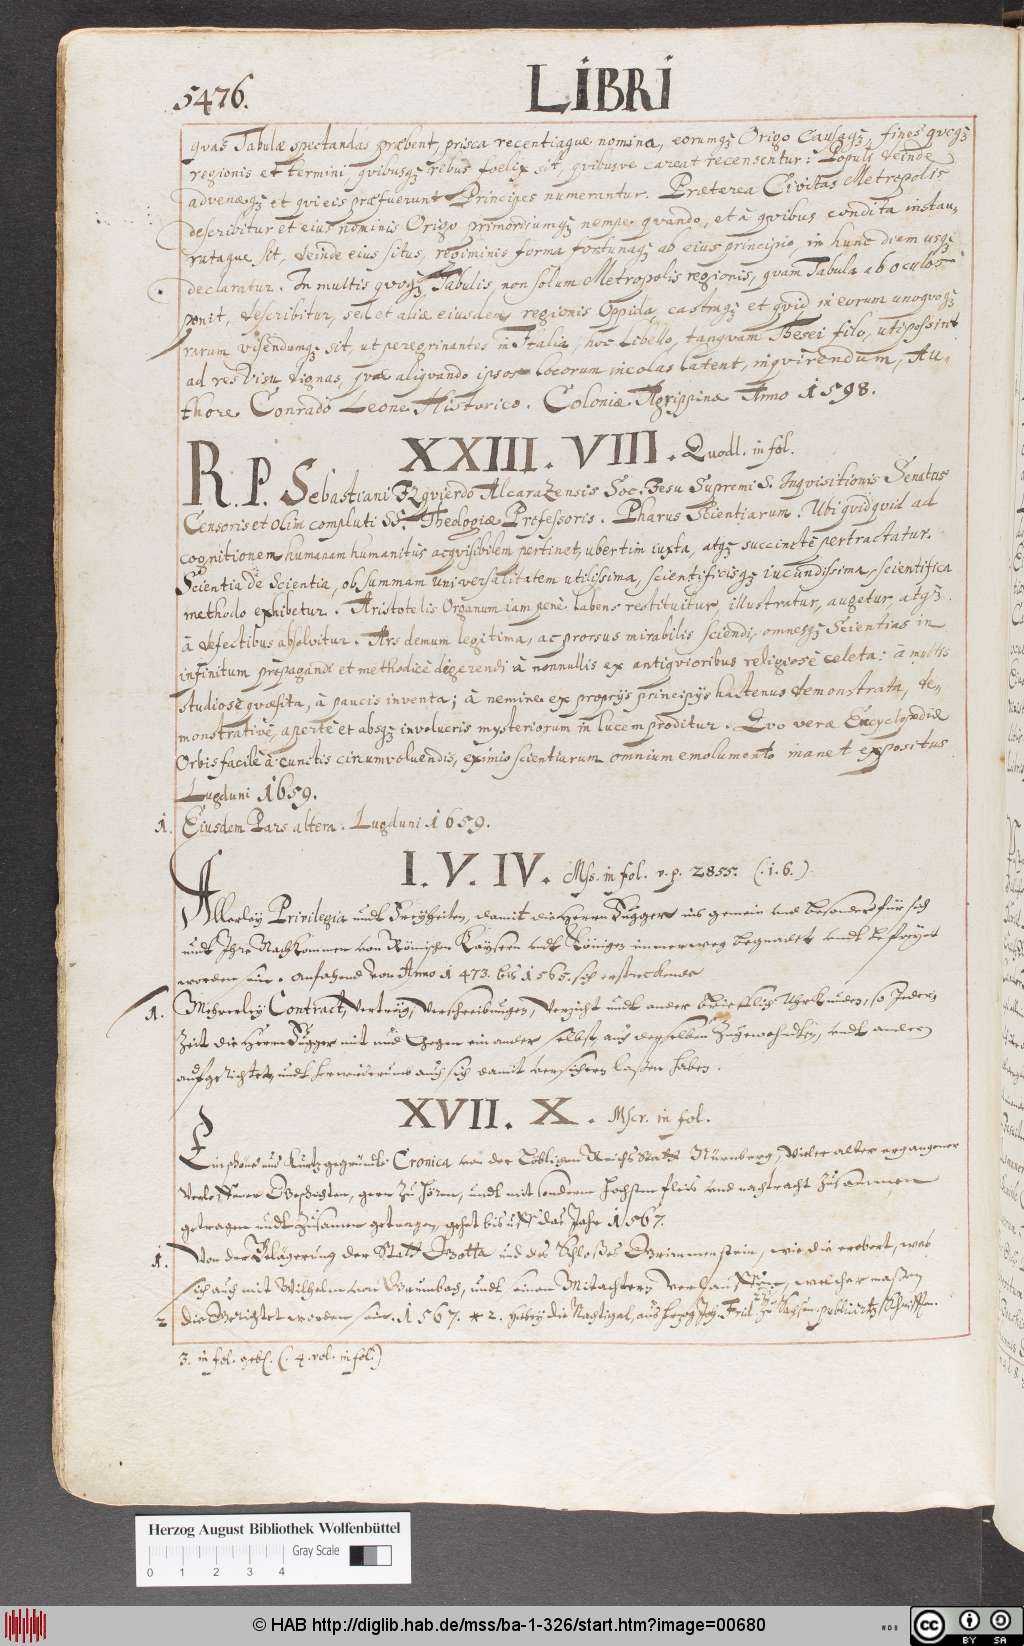 5476.
LIBRI
qvas Tabulæ spectandas præbent, prisca recentiaque nomina, eorumqz Origo Causaqz, fines qveqz
regionis et termini, qvibusqz rebus foelix sit, qvibusve careat recensentur: Populi deinde
advenæqz et qvi eis præfuerunt Principes numerantur. Præterea Civitas Metropolis
describitur et eius nominis Origo primordiumqz nempe qvando, et à qvibus condita instau-
rataque sit, deinde eius situs, regiminis forma fortunaqz ab eius principio in hunc diem usqz
declaratur. In multis qvoqz Tabulis, non solum Metropolis regionis, qvam Tabula ab oculos
ponit, describitur, sed et aliæ eiusdem regionis Oppida castraqz et qvid in eorum unoqvoqz
rarum visendumqz sit, ut peregrinantes in Italia, hoc Libello, tanqvam Thesei filo, uti possint
ad res visu dignas, qvæ aliqvando ipsos locorum incolas latent, inqvirendum, Au-
thore Conrado Leone Historico. Coloniæ Agrippinæ Anno 1598.
XXIII. VIII. Quodl. in fol.
R. P. Sebastiani Izqvierdo Alcarazensis Soc. Iesu Supremi S. Inqvisitionis Senatus
Censoris et olim compluti SS. Theologiæ Professoris. Pharus Scientiarum. Ubi qvidqvid ad
cognitionem humanam humanitùs acqvisibilem pertinet, ubertim iuxta, atqz succinctè pertractatur.
Scientia de Scientia, ob summam universalitatem utilissima, scientificisqz iucundissima, scientifica
methodo exhibetur. Aristotelis Organum iam penè labens restituitur, illustratur, augetur, atqz
à defectibus absolvitur. Ars demum legitima, ac prorsus mirabilis sciendi, omnesqz Scientias in
infinitum propagandi et methodicè digerendi à nonnullis ex antiqvioribus religiosè celata: à multis
studiosè qvæsita, à paucis inventa; à nemine ex proprijs principijs hactenus demonstrata, de-
monstrativè, apertè et absqz involucris mysteriorum in lucem proditur. Qvo veræ Encyclopediæ
Orbis facilè à cunctis circumvoluendis, eximio scientiarum omnium emolumento manet expositus
Lugduni 1659.
1. Eiusdem Pars altera. Lugduni 1659.
I. V. IV. Mss. in fol. v. p. 2855. (.i.6.)
Allerley Privilegia undt Freyheiten, damit die Herrn Fugger ins gemein und besonders für sich
undt Ihre Nachkommen von Römischen Kaysern undt Königen immerweg begnadet undt befreyet
worden sein. Anfahend von Anno 1473. bis 1565. sich erstreckende
1. Mehrerley Contract, Verträg, Verschreibungen, Verzicht undt ander brieffliche Uhrkunden, so Jeder
Zeit die Herrn Fugger mit und gegen ein ander selbst, auch derselben undt andern
auffgerichtet, undt auch sich damit versichern lassen haben.
XVII. X. Mscr. in fol.
Ein schöne und kurtz gegründte Cronica von der Löblichen Reichs Statt Nürnberg, Vieler alter ergangener
Geschichten, gern zu hören, undt mit sonderm hochstem fleis und nachtracht zusammen
getragen undt zusamen gezogen, gehet bis uff das Jahr 1567.
1. Von der Belagerung der Statt Gotta und des Schlosses Grimmenstein, wie die erobert, was
sich auch mit Wilhelm von Grumbach, undt seinen Mitächtern verlauffen, welcher massen
2 die Gerichtet worden sein. 1567. * 2. die Nachtigal, aus
3. in fol. geb. (. 4. vol. in fol.)
Herzog August Bibliothek Wolfenbüttel
Gray Scale
0 1 2 3 4
© HAB http://diglib.hab.de/mss/ba-1-326/start.htm?image=00680
cc BY SA